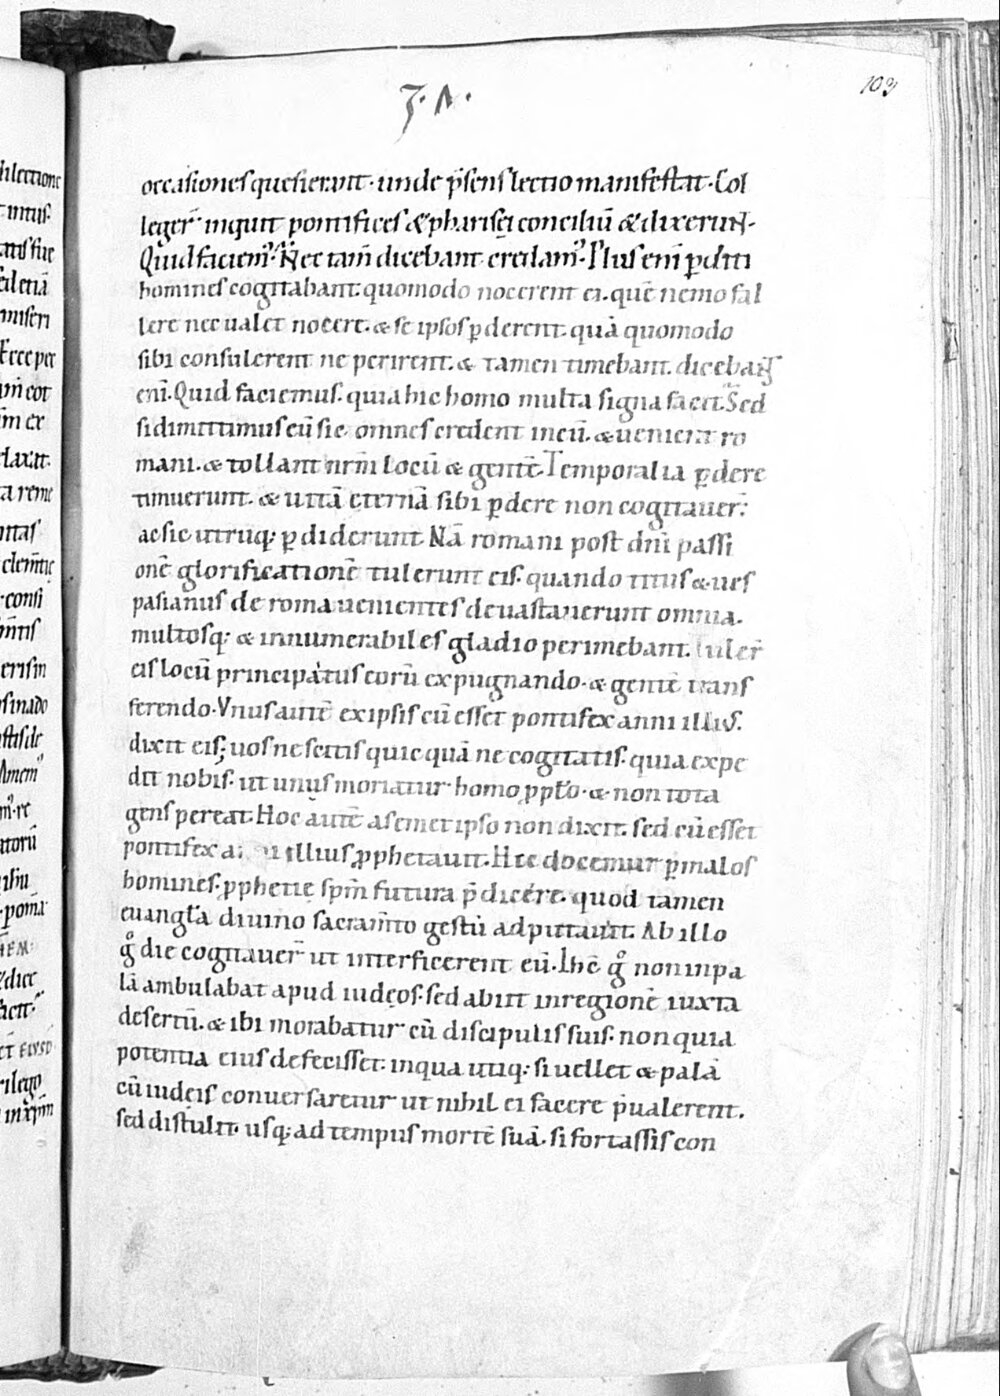 ꝫ · Λ ·
103
occasiones quesierunt · unde p̄sens lectio manifestat · Col
leger̄ inquit pontifices & pharisei conciliū & dixerunt ·
Quid faciem᷒ · Nec tam̄ dicebant credam᷒ · Plus eni᷒ ꝑditi
homines cogitabant · quomodo nocerent ei · quē nemo fal
lere nec ualet nocere · & se ipsos ꝑderent · quā quomodo
sibi consulerent ne perirent · & tamen timebant · dicebant
enī · Quid faciemus · quia hic homo multa signa facit · Sed
si dimittimus eū sic · omnes credent in eū · & uenient ro
mani · & tollant nr̄m locū & gentē · Temporalia ꝑdere
timuerunt · & uitā eternā sibi ꝑdere non cogitauer̄ ·
ac sic utrūq; ꝑdiderunt Nā romani post dn̄i passi
onē glorificationē tulerunt eis · quando titus & ues
pasianus de roma uenientes deuastauerunt omnia ·
multosq; & innumerabiles gladio perimebant · tuler̄
eis locū principatus eorū expugnando · & gentē trans
ferendo · Vnus autē ex ipsis cū esset pontifex anni illius ·
dixit eis; uos nescitis quicquā nec cogitatis · quia expe
dit nobis · ut unus moriatur homo ꝓ pp̄lo · & non tota
gens pereat · Hoc autē a semetipso non dixit · sed cū esset
pontifex illius ꝓphetauit · Hic docemur ꝑ malos
homines · ꝓphetie spm̄ futura p̄dicere · quod tamen
euangl̄a diuino sacram̄to gestū adputauit · Ab illo
gͦ die cogitauer̄ ut interficerent eū · Ihc̄ gͦ non in pa
lā ambulabat apud iudeos · sed abiit in regionē iuxta
desertū · & ibi morabatur cū discipulis suis · non quia
potentia eius defecisset · in qua utiq; si uellet & palā
cū iudeis conuersaretur ut nihil ei facere p̄ualerent ·
sed distulit usq; ad tempus mortē suā · si fortassis con